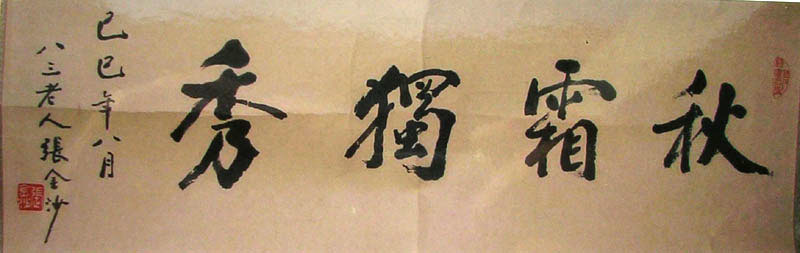 秋霜獨秀
己巳年八月
八三老人張金沙